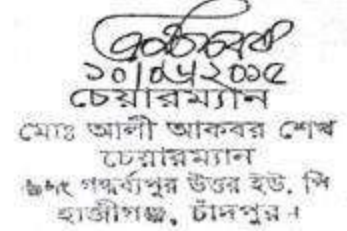 চেয়ারম্যান
মোঃ আলী আকবর শেখ
চেয়ারম্যান
গন্ধর্ব্যপুর উত্তর ইউ, পি
হাজীগঞ্জ, চাঁদপুর।